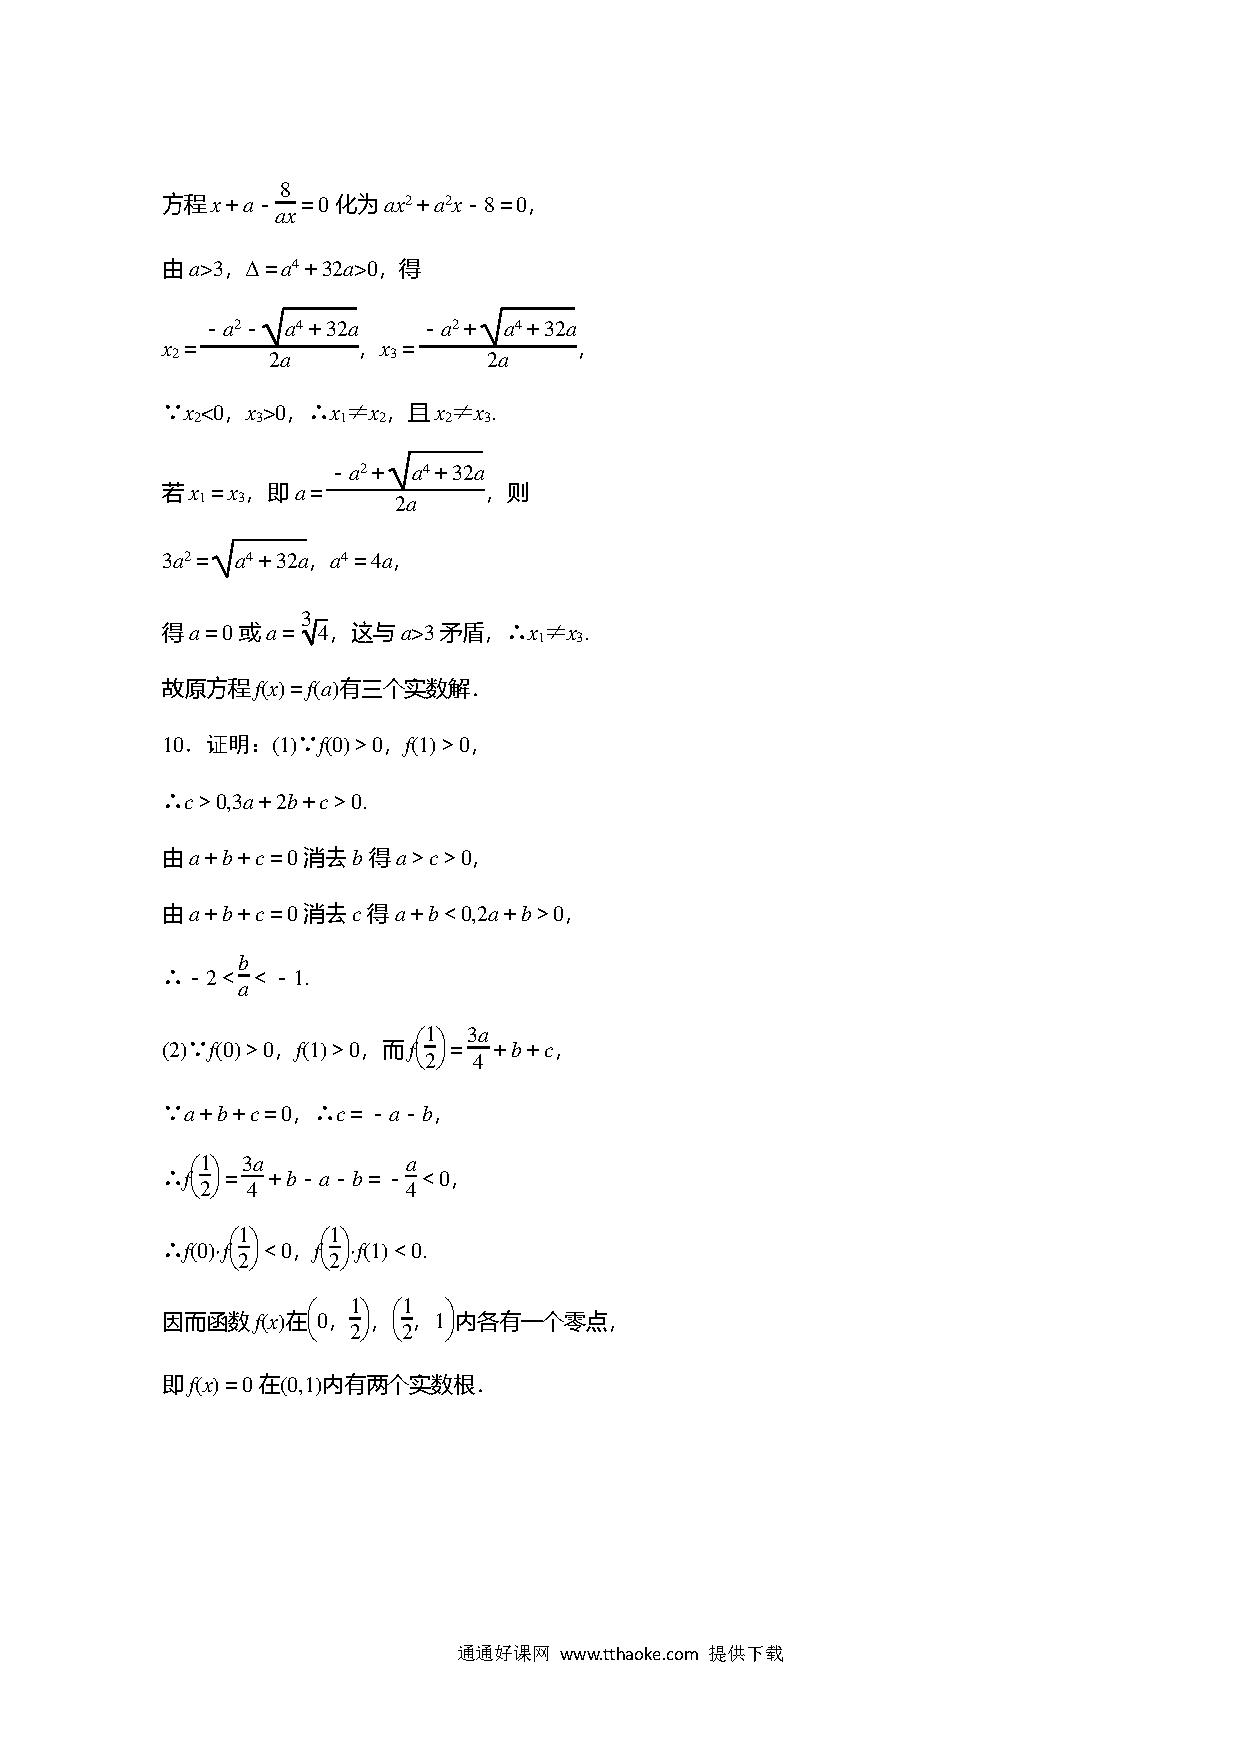 方程 x＋a－8/ax＝0 化为 ax²＋a²x－8＝0，
由 a>3，Δ＝a⁴＋32a>0，得
x₂＝(－a²－√(a⁴＋32a))/2a，x₃＝(－a²＋√(a⁴＋32a))/2a，
∵x₂<0，x₃>0，∴x₁≠x₂，且 x₂≠x₃.
若 x₁＝x₃，即 a＝(－a²＋√(a⁴＋32a))/2a，则
3a²＝√(a⁴＋32a)，a⁴＝4a，
得 a＝0 或 a＝∛4，这与 a>3 矛盾，∴x₁≠x₃.
故原方程 f(x)＝f(a)有三个实数解．
10．证明：(1)∵f(0)＞0，f(1)＞0，
∴c＞0,3a＋2b＋c＞0.
由 a＋b＋c＝0 消去 b 得 a＞c＞0，
由 a＋b＋c＝0 消去 c 得 a＋b＜0,2a＋b＞0，
∴－2＜b/a＜－1.
(2)∵f(0)＞0，f(1)＞0，而 f(1/2)＝3a/4＋b＋c，
∵a＋b＋c＝0，∴c＝－a－b，
∴f(1/2)＝3a/4＋b－a－b＝－a/4＜0，
∴f(0)·f(1/2)＜0，f(1/2)·f(1)＜0.
因而函数 f(x)在(0，1/2)，(1/2，1)内各有一个零点，
即 f(x)＝0 在(0,1)内有两个实数根．
通通好课网 www.tthaoke.com 提供下载